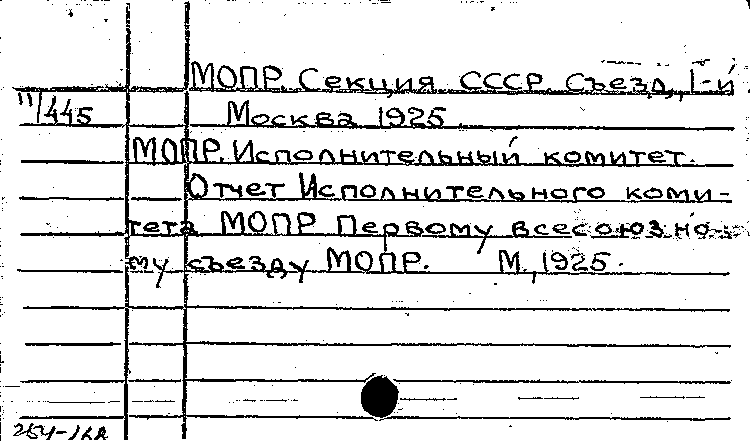 МОПР. Секция СССР. Съезд, I-й
11/445 Москва 1925.
МОПР. Исполнительный комитет.
Отчет Исполнительного коми-
тета МОПР Первому всесоюзно-
му съезду МОПР. М., 1925.